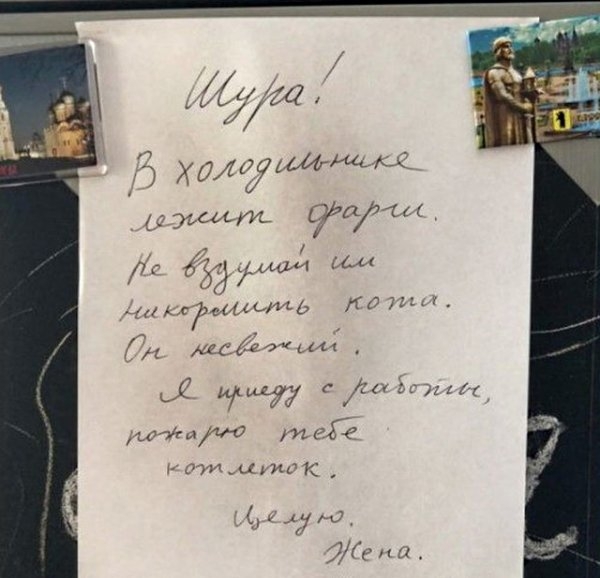 Шура!
В холодильнике
лежит фарш.
Не вздумай им
накормить кота.
Он несвежий.
Я приеду с работы,
пожарю тебе
котлеток.
Целую.
Жена.